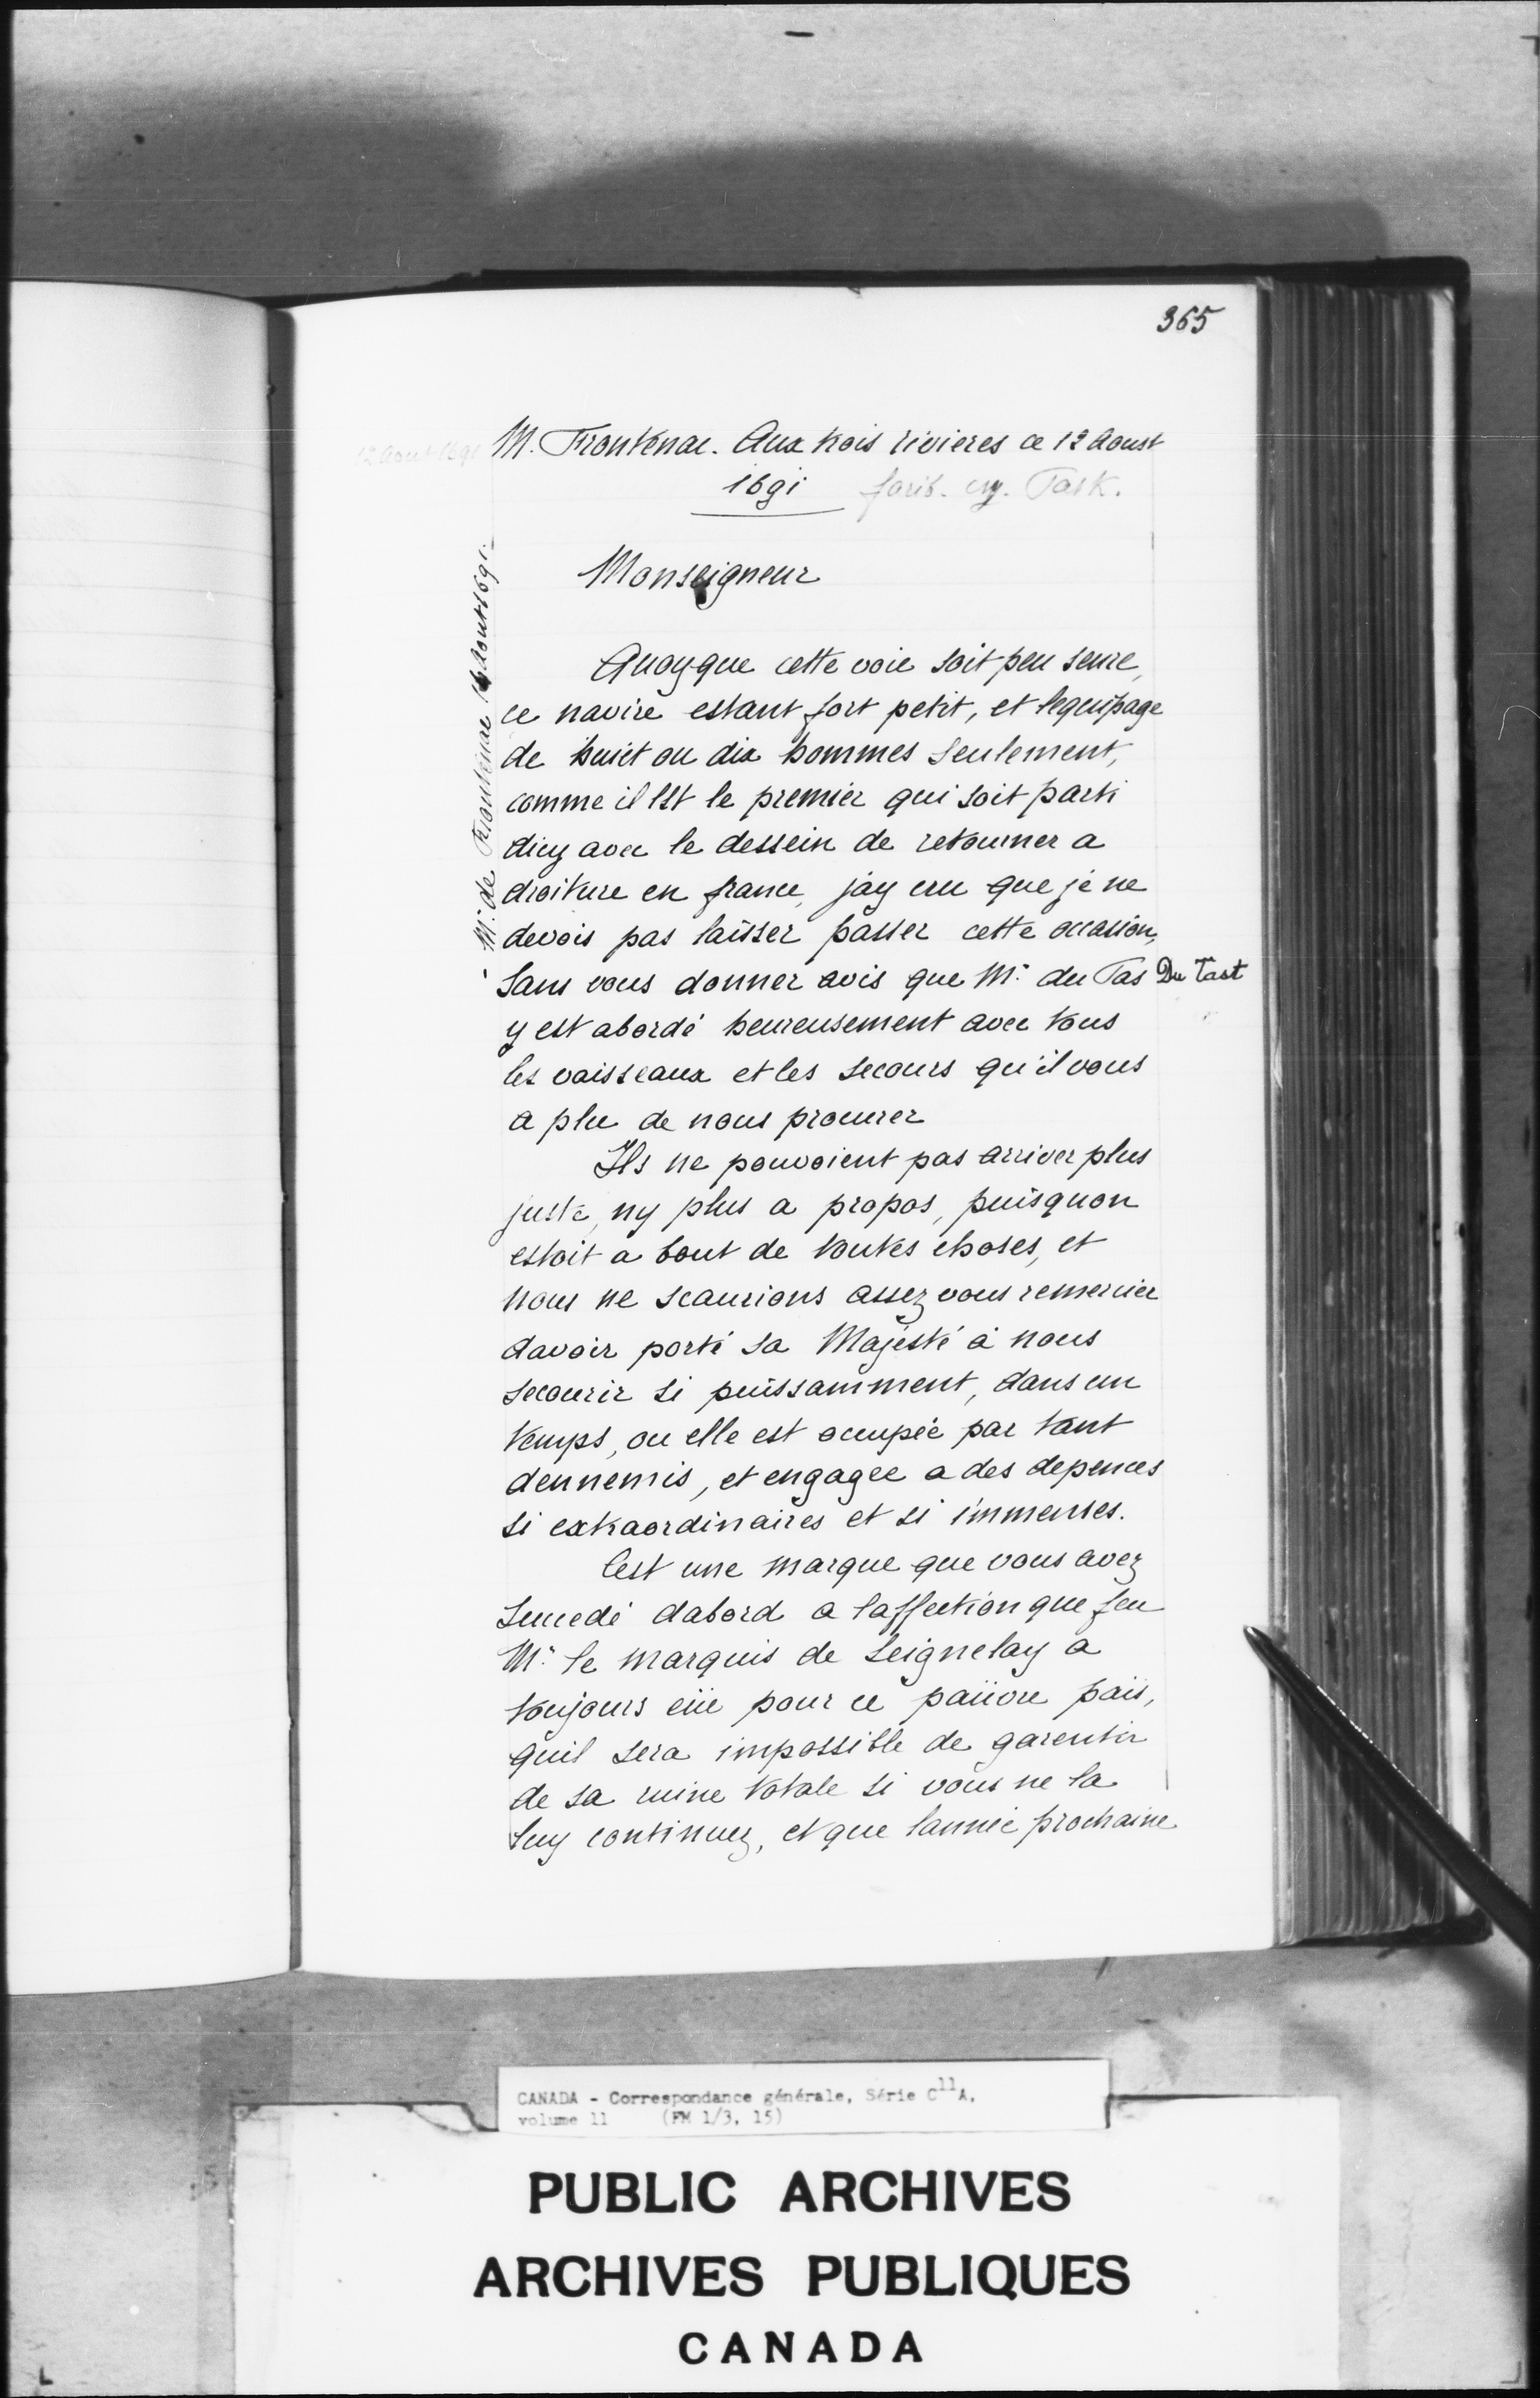 365
12 Aout 1691
M. Frontenac. Aux trois rivieres ce 12 Aoust
1691
Monseigneur
Mr. de Frontenac 12 Aout 1691.
Quoyque cette voie soit peu seure,
ce navire estant fort petit, et lequipage
de huict ou dix hommes seulement,
comme il est le premier qui soit parti
dicy avec le dessein de retourner a
droiture en france, jay cru que je ne
devois pas laisser passer cette occasion,
Sans vous donner avis que Mr. du Tas Du Tast
y est abordé heureusement avec tous
les vaisseaux et les secours qu'il vous
a plu de nous procurer
Ils ne pouvoient pas arriver plus
juste, ny plus a propos, puisquon
estoit a bout de toutes choses, et
nous ne scaurions assez vous remercier
davoir porté sa Majesté à nous
secourir si puissamment, dans un
temps, ou elle est occupée par tant
dennemis, et engagée a des depences
si extraordinaires et si immenses.
Cest une marque que vous avez
Succedé dabord a laffection que feu
Mr. le marquis de Seignelay a
toujours eüe pour ce paüvre païs,
quil sera impossible de garentir
de sa ruine totale si vous ne la
luy continuez, et que lannée prochaine
CANADA - Correspondance générale, Série C11A,
volume 11 (FM 1/3, 15)
PUBLIC ARCHIVES
ARCHIVES PUBLIQUES
CANADA